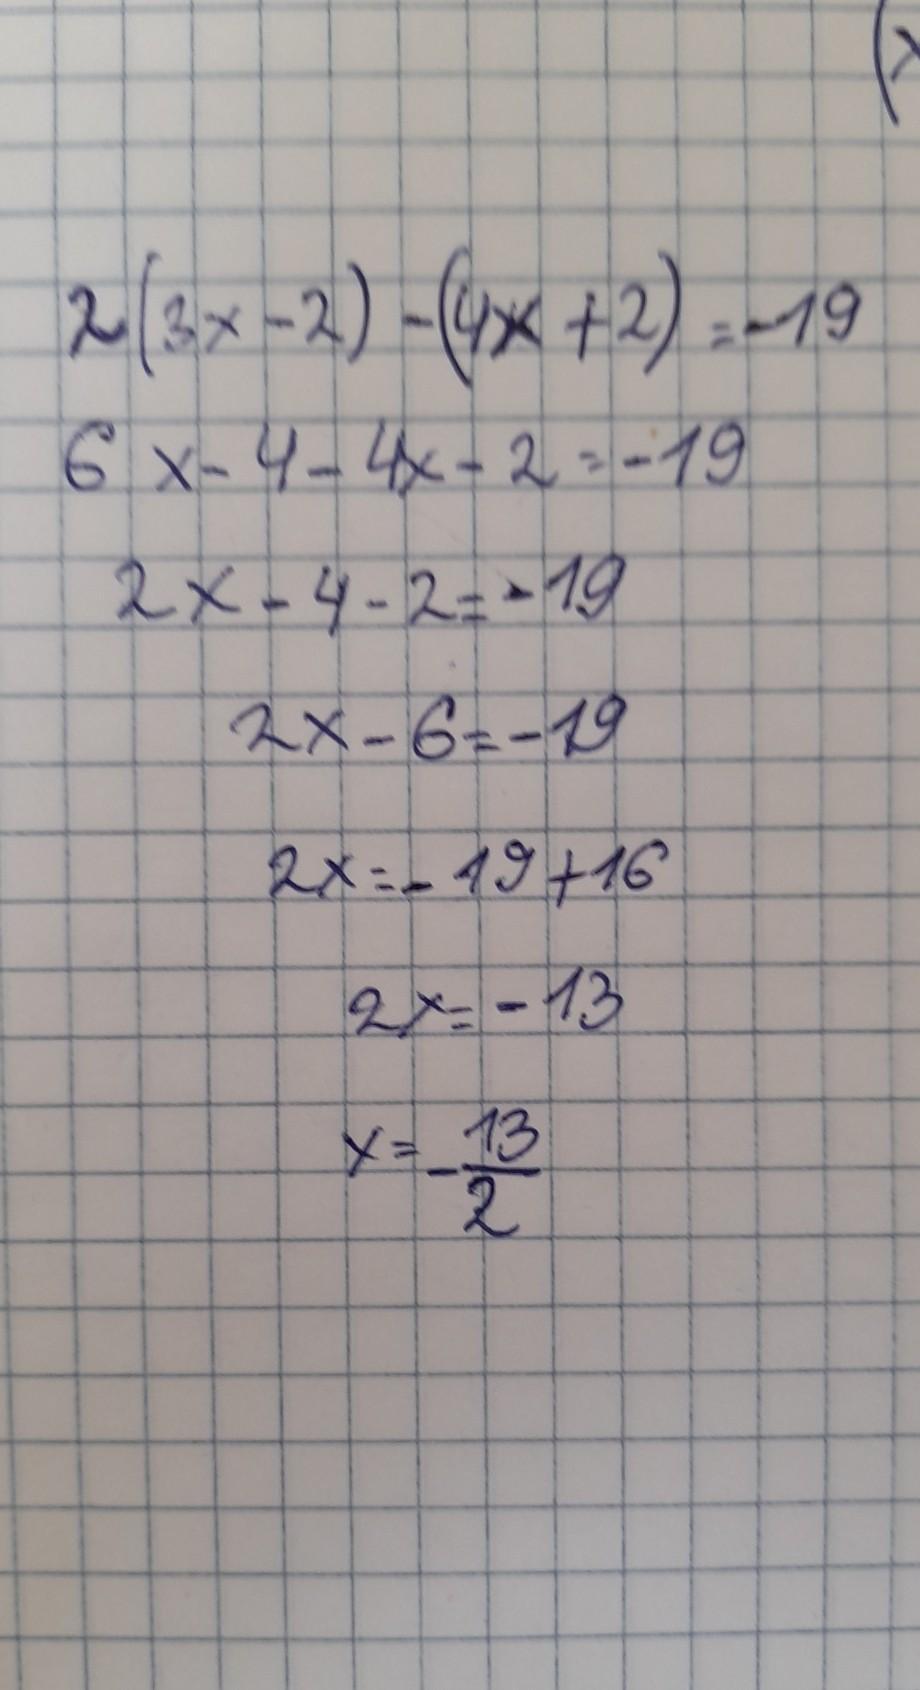 (x
2(3x-2)-(4x+2)=-19
6x-4-4x-2=-19
2x-4-2=-19
2x-6=-19
2x=-19+16
2x=-13
x=-13/2